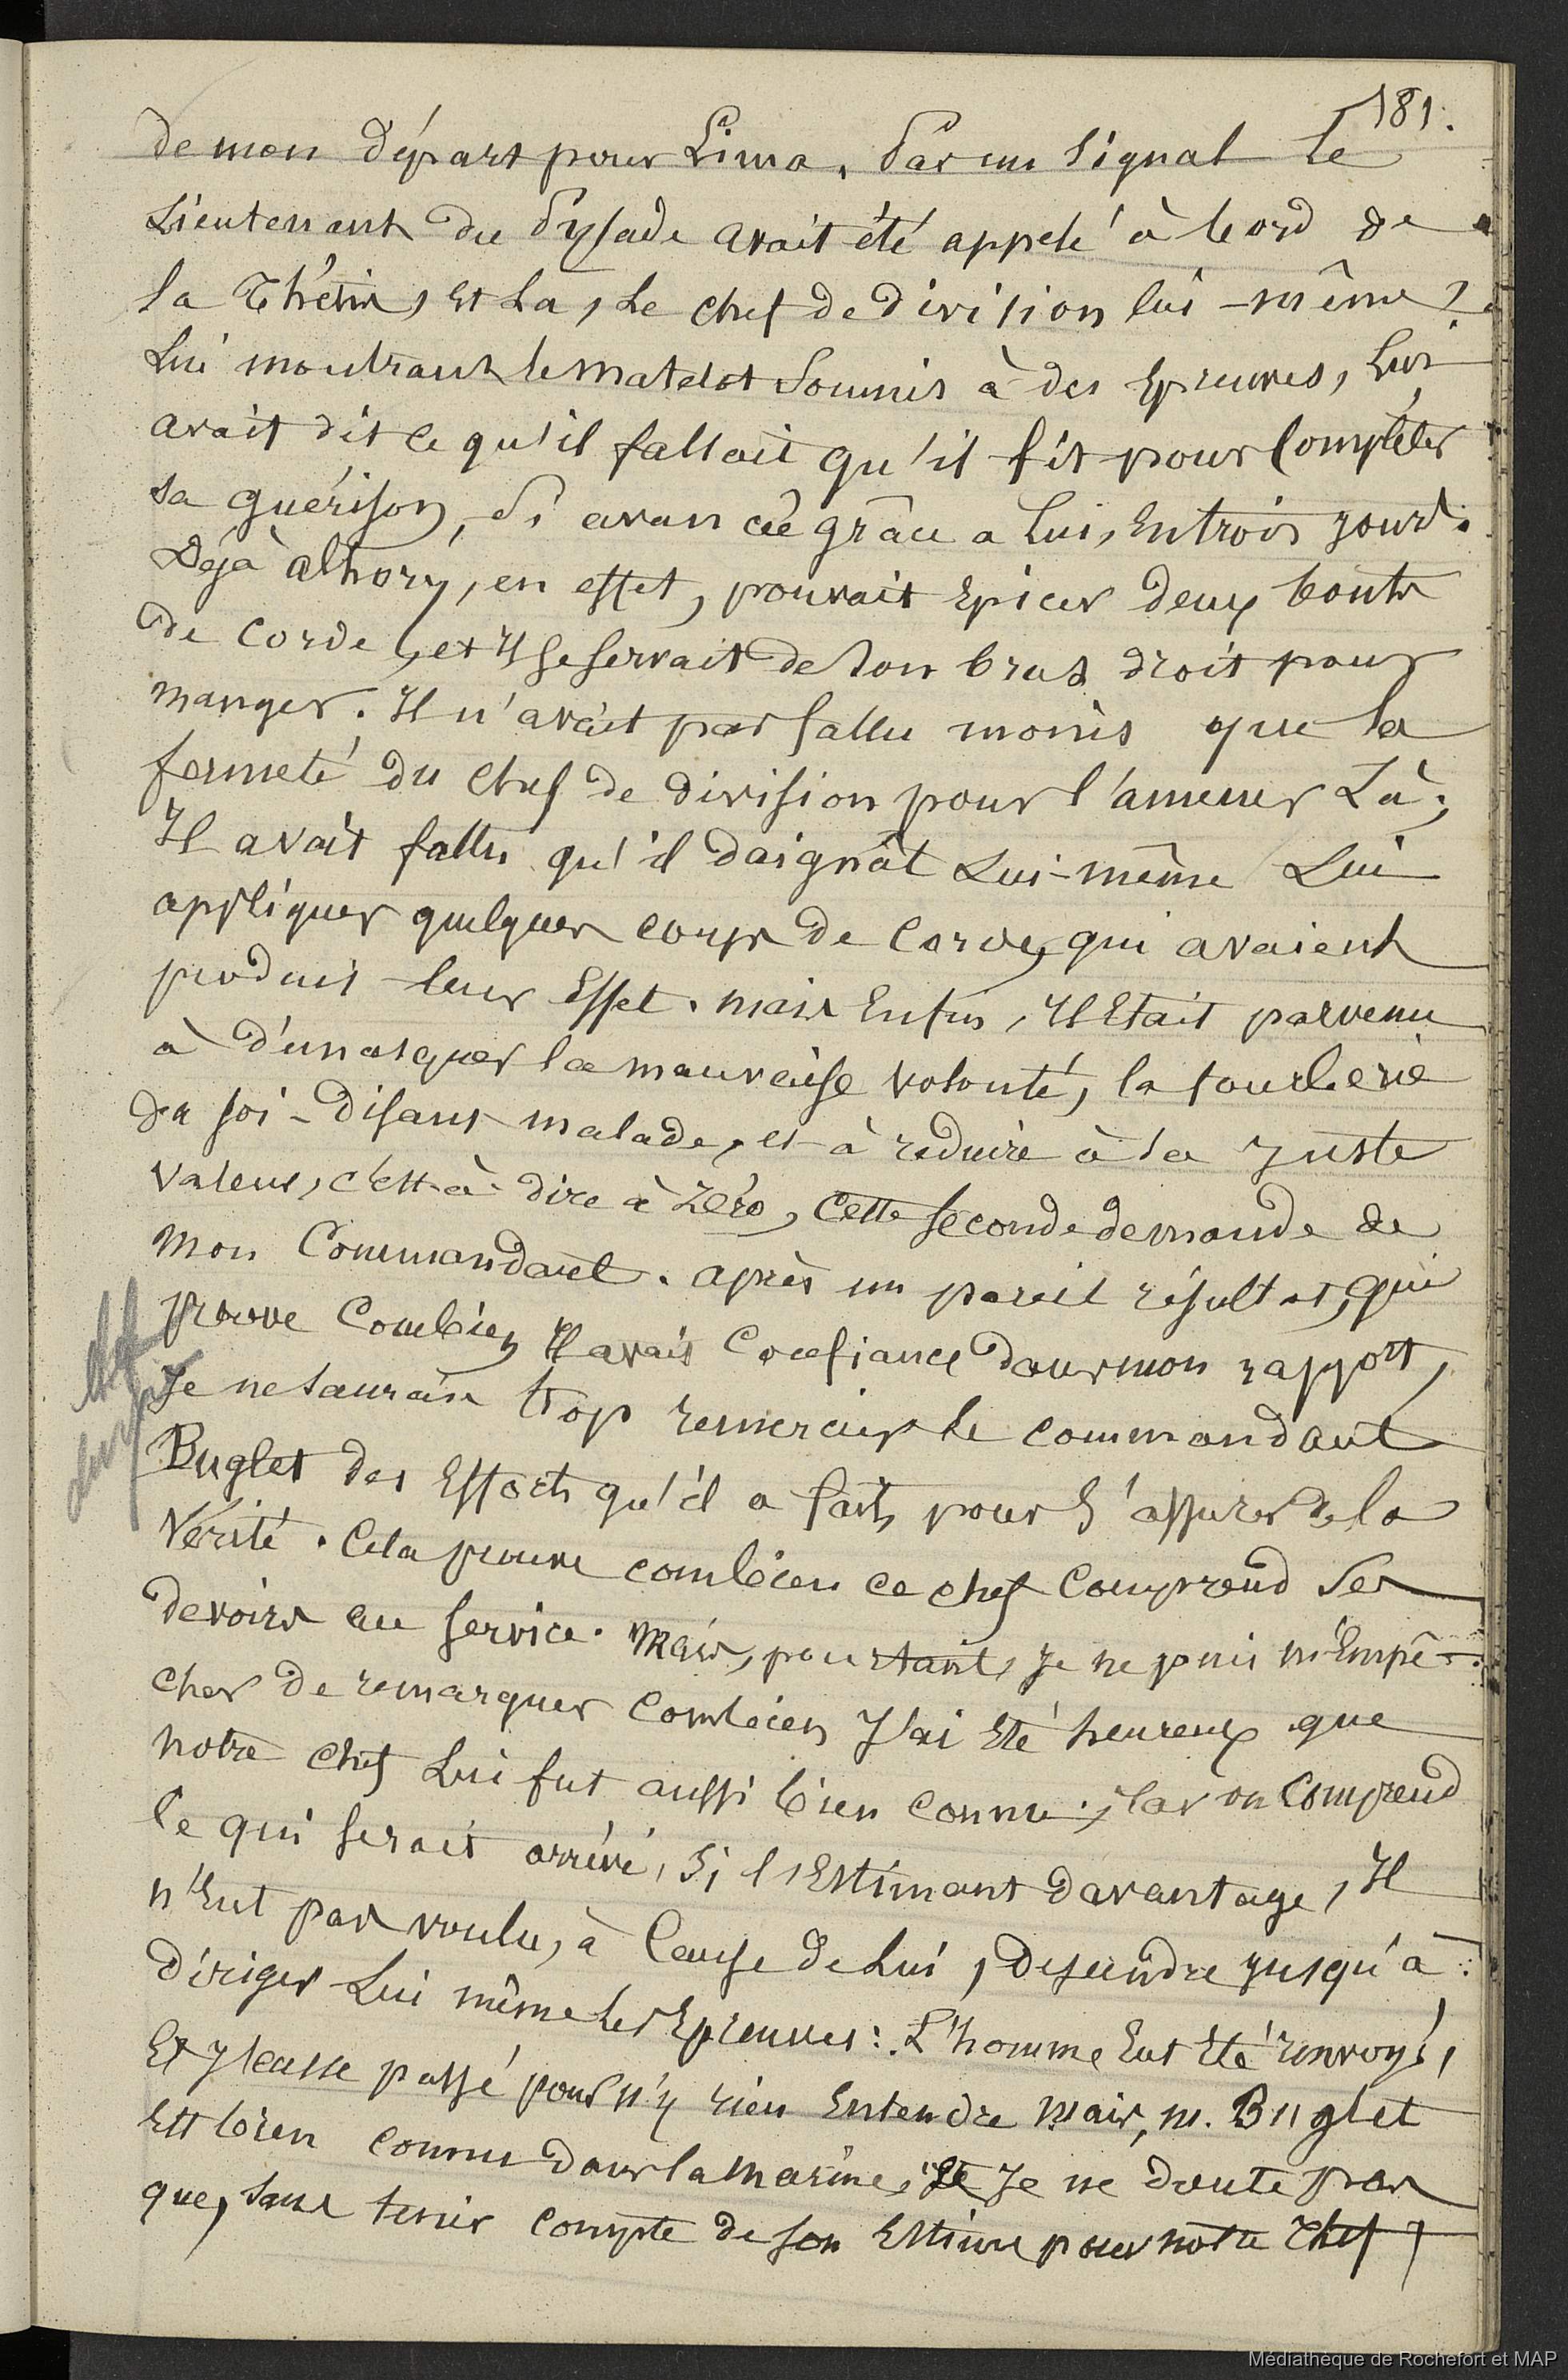 181.
de mon départ pour Lima. Par un signal le
Lieutenant du Pylade avait été appelé à bord de
la Thétis, et là, le chef de division lui-même,
Lui montrant le matelot soumis à des épreuves, lui
avait dit ce qu'il fallait qu'il fît pour compléter
sa guérison, si avancée grâce a lui, en trois jours.
Déjà Alhory, en effet, pouvait épicer deux bouts
de corde, et il se servait de son bras droit pour
manger. Il n'avait pas fallu moins que la
fermeté du chef de division pour l'amener là;
Il avait fallu qu'il daignât lui-même lui
appliquer quelques coups de corde, qui avaient
produit leur effet. mais enfin, il était parvenu
à démasquer la mauvaise volonté, la fourberie
du soi-disant malade, et à réduire à sa juste
valeur, c'est-à-dire à zéro, cette seconde demande de
mon Commandant. après un pareil résultat, qui
prouve combien il avait confiance dans mon rapport,
Je ne saurais trop remercier le commandant
Buglet des efforts qu'il a faits pour s'assurer de la
vérité. Cela prouve combien ce chef comprend ses
devoirs au service. Mais, pourtant, je ne puis m'empê-
cher de remarquer combien j'ai été heureux que
notre chef lui fut aussi bien connu; car on comprend
ce qui serait arrivé, si l'estimant davantage, il
n'eut pas voulu, à cause de lui, descendre jusqu'à
diriger lui même les épreuves: L'homme eut été renvoyé,
Et j'eusse passé pour n'y rien entendre mais, M. Buglet
est bien connu dans la marine, et je ne doute pas
que, sans tenir compte de son estime pour notre chef,